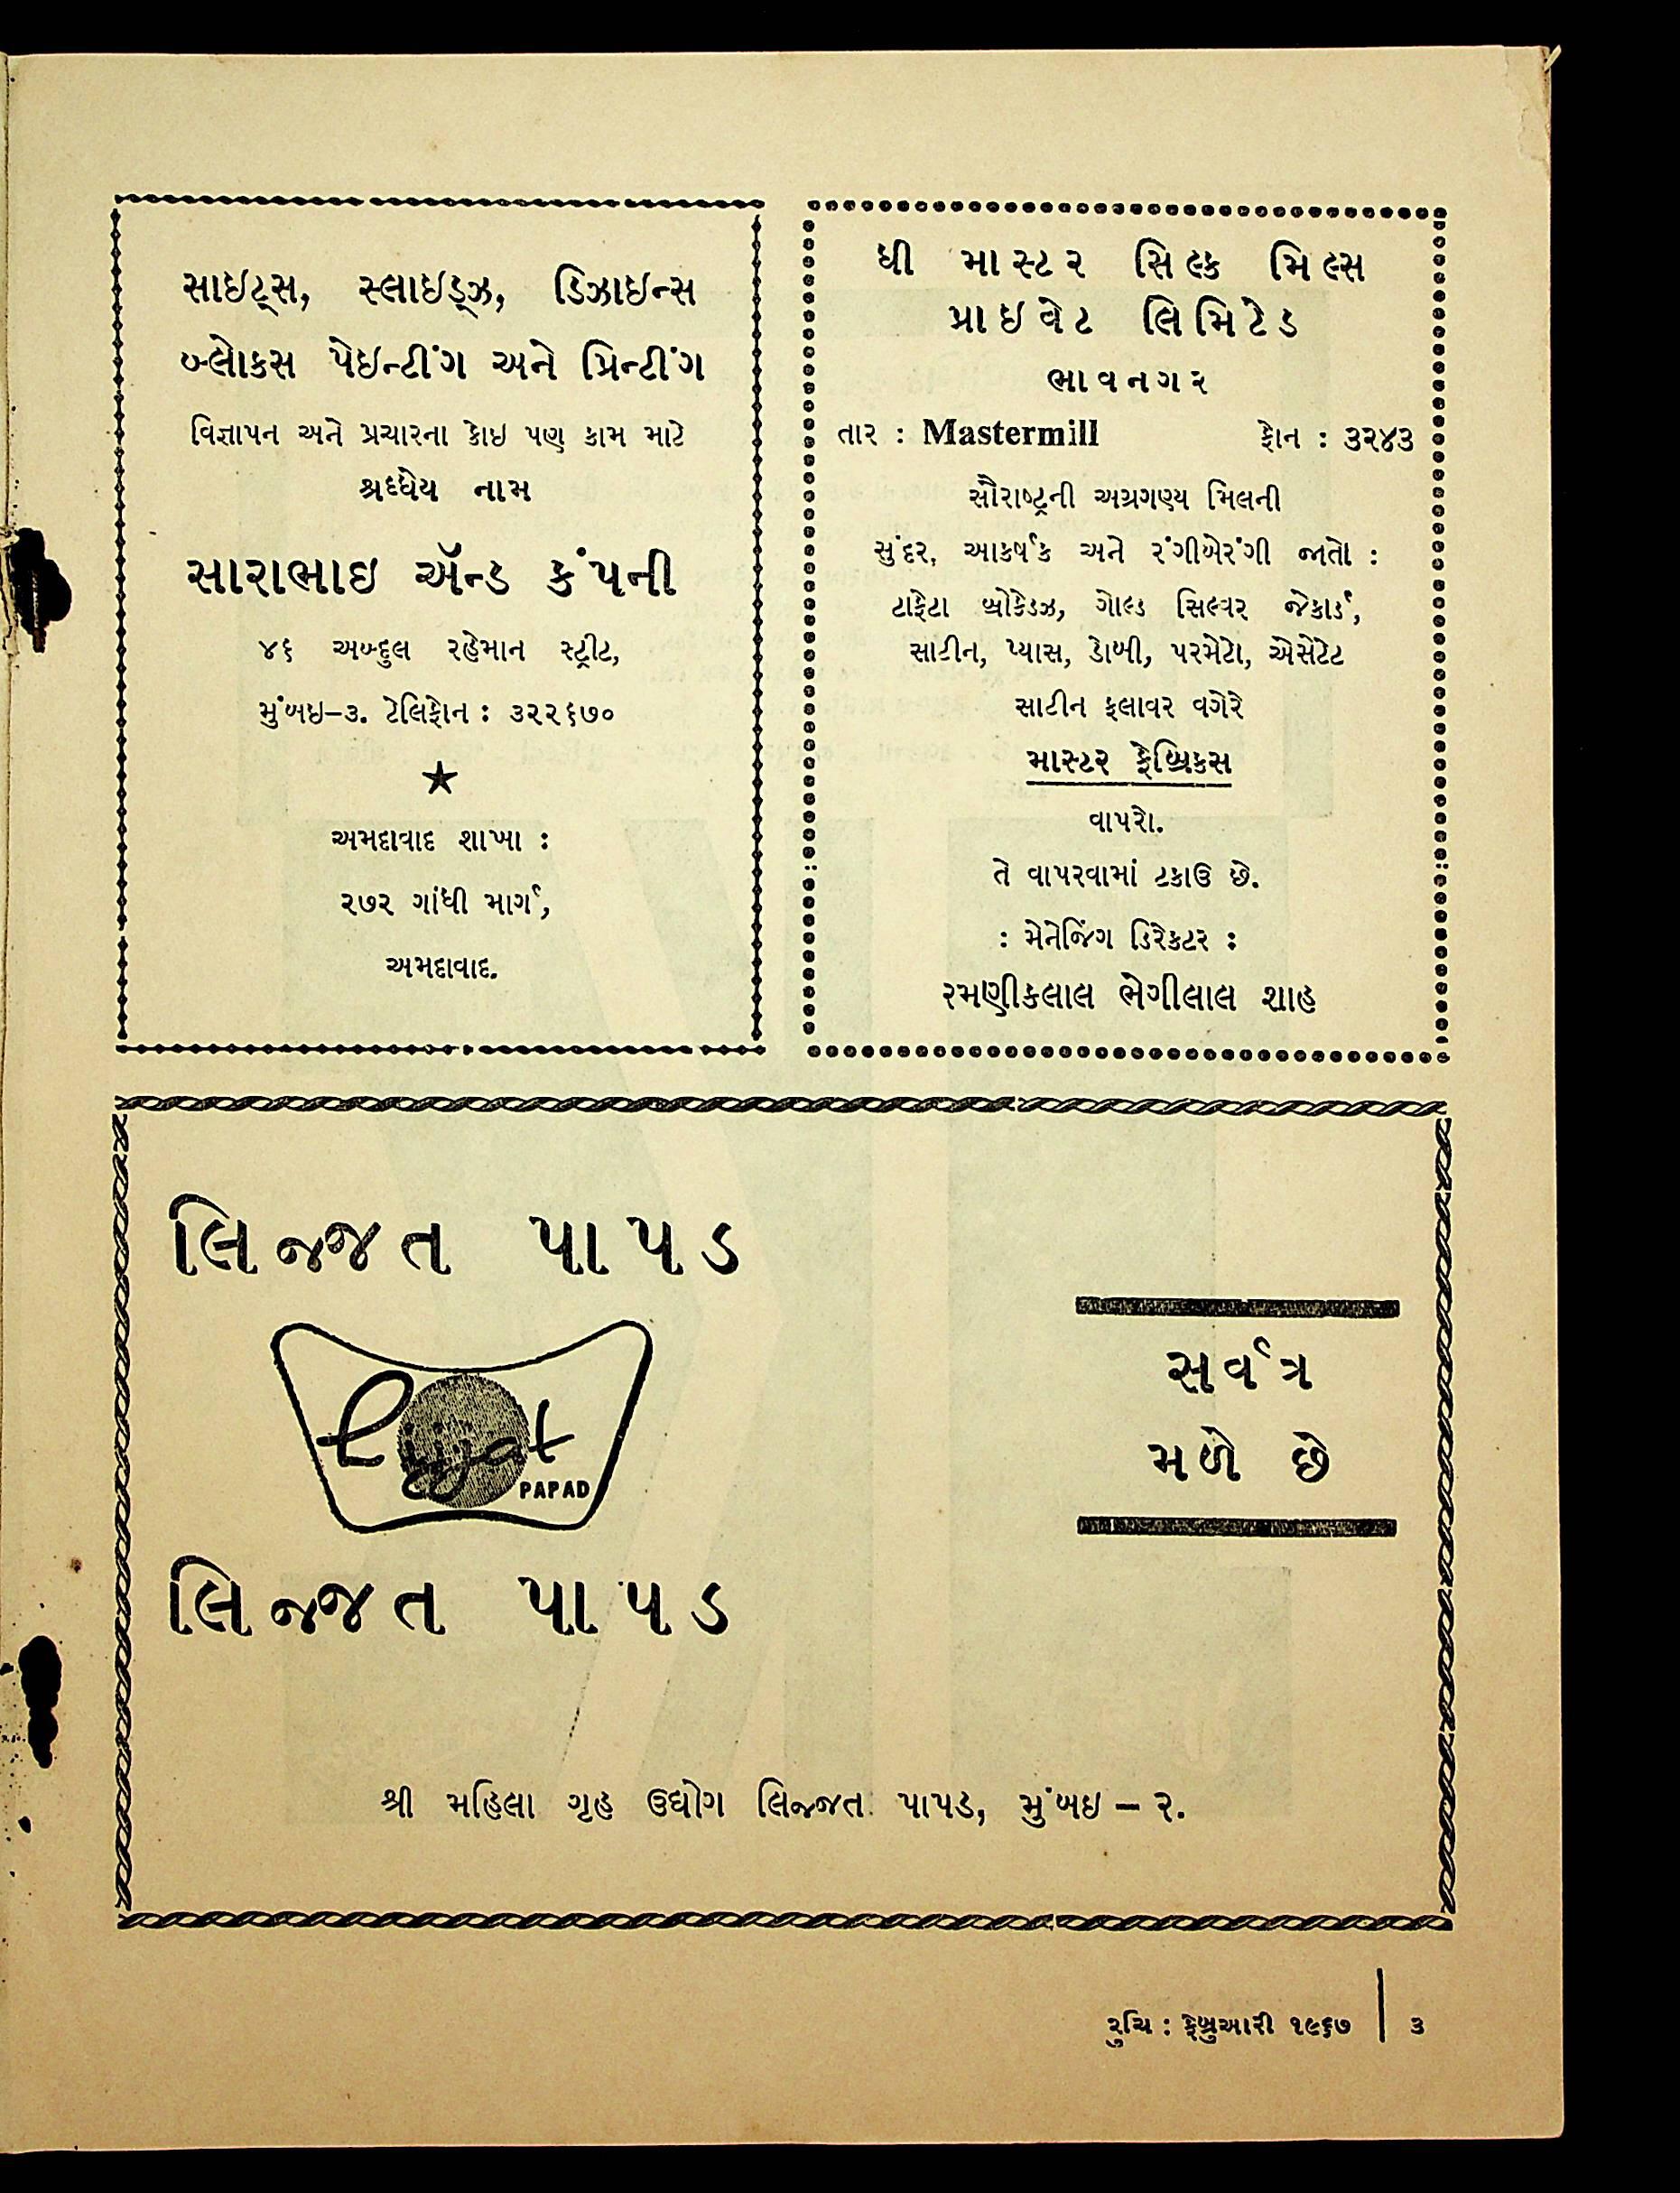 સાઇટ્સ, સ્લાઇડ્ઝ, ડિઝાઇન્સ
બ્લોકસ પેઇન્ટીંગ અને પ્રિન્ટીંગ
વિજ્ઞાપન અને પ્રચારના કોઇ પણ કામ માટે
શ્રધ્ધેય નામ
સારાભાઇ ઍન્ડ કંપની
૪૬ અબ્દુલ રહેમાન સ્ટ્રીટ,
મુંબઇ–૩. ટેલિફોન : ૩૨૨૬૭૦
★
અમદાવાદ શાખા :
૨૭૨ ગાંધી માર્ગ,
અમદાવાદ.
ધી માસ્ટર સિલ્ક મિલ્સ
પ્રાઇવેટ લિમિટેડ
ભાવનગર
તાર : Mastermill ફોન : ૩૨૪૩
સૌરાષ્ટ્રની અગ્રગણ્ય મિલની
સુંદર, આકર્ષક અને રંગીબેરંગી જાતો :
ટાફેટા બ્રોકેડઝ, ગોલ્ડ સિલ્વર જેકાર્ડ,
સાટીન, પ્યાસ, ડોબી, પરમેટો, એસેટેટ
સાટીન ફલાવર વગેરે
માસ્ટર ફેબ્રિકસ
વાપરો.
તે વાપરવામાં ટકાઉ છે.
: મેનેજિંગ ડિરેકટર :
રમણીકલાલ ભેગીલાલ શાહ
લિજ્જત પાપડ
lijjat
PAPAD
લિજ્જત પાપડ
સર્વત્ર
મળે છે
શ્રી મહિલા ગૃહ ઉદ્યોગ લિજ્જત પાપડ, મુંબઇ – ૨.
રુચિ : ફેબ્રુઆરી ૧૯૬૭ | ૩